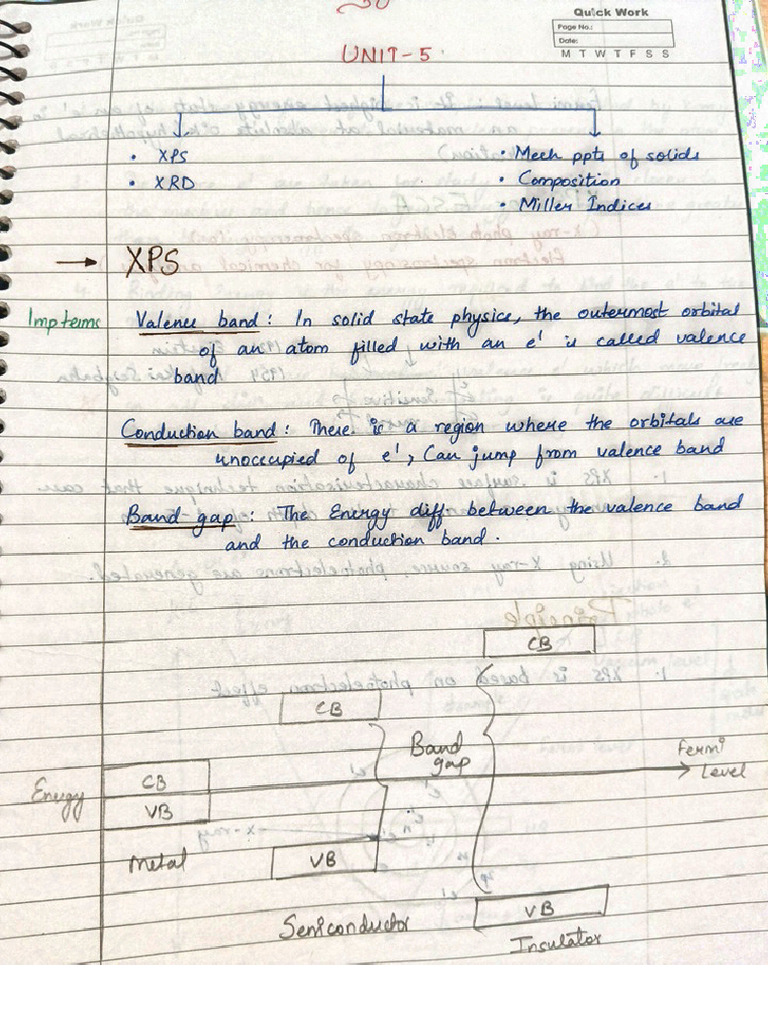 Quick Work
Page No.:
Date:
M T W T F S S
UNIT-5
• XPS
• XRD
• Mech ppts of solids
• Composition
• Miller Indices
→ XPS
Imp terms
Valence band : In solid state physics, the outermost orbital
of an atom filled with an e' is called valence
band
Conduction band : There is a region where the orbitals are
unoccupied of e', Can jump from valence band
Band-gap : The Energy diff between the valence band
and the conduction band.
CB
CB
Band
gap
Fermi
level
Energy
CB
VB
Metal
VB
Semiconductor
VB
Insulator